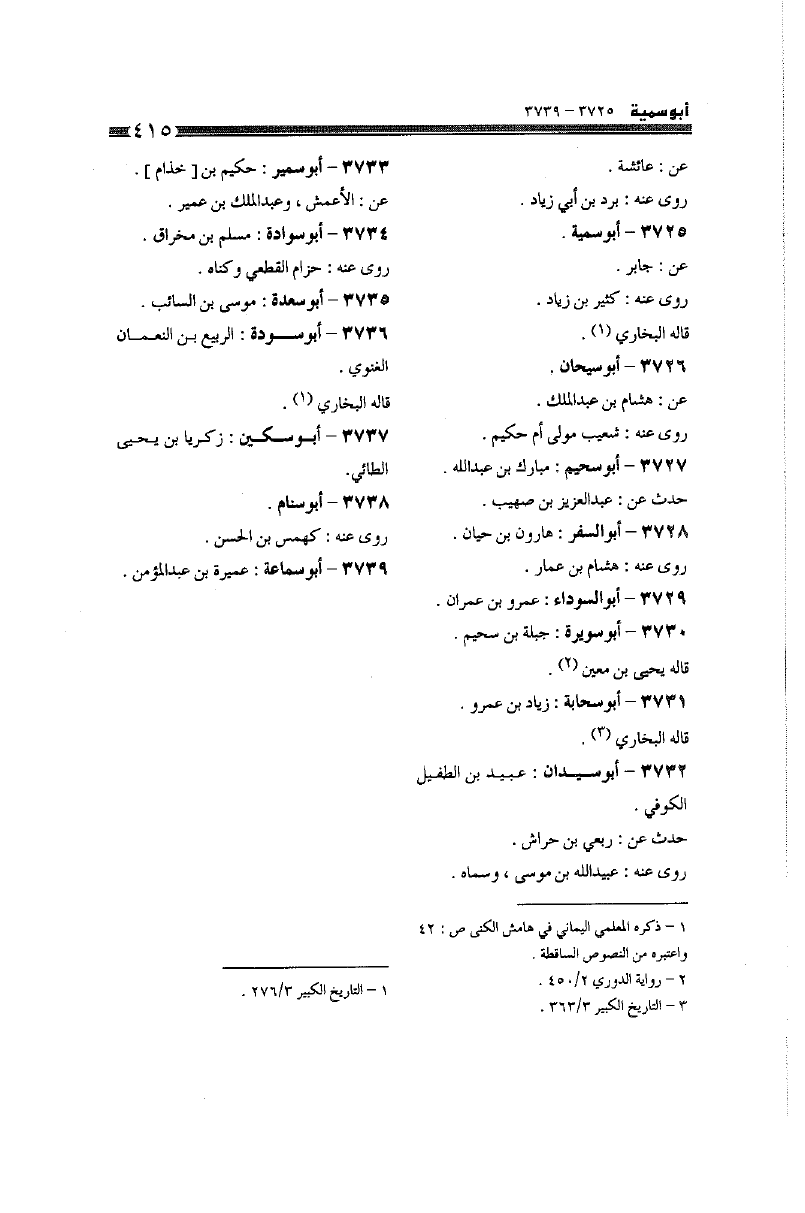 أبو سمية ٣٧٢٥ – ٣٧٣٩
٤١٥
عن : عائشة .
روى عنه : برد بن أبي زياد .
٣٧٢٥ – أبو سمية .
عن : جابر .
روى عنه : كثير بن زياد .
قاله البخاري (١) .
٣٧٢٦ – أبو سيحان .
عن : هشام بن عبدالملك .
روى عنه : شعيب مولى أم حكيم .
٣٧٢٧ – أبو سحيم : مبارك بن عبدالله .
حدث عن : عبدالعزيز بن صهيب .
٣٧٢٨ – أبو السفر : هارون بن حيان .
روى عنه : هشام بن عمار .
٣٧٢٩ – أبو السوداء : عمرو بن عمران .
٣٧٣٠ – أبو سويرة : جبلة بن سحيم .
قاله يحيى بن معين (٢) .
٣٧٣١ – أبو سحابة : زياد بن عمرو .
قاله البخاري (٣) .
٣٧٣٢ – أبو سيدان : عبيد بن الطفيل
الكوفي .
حدث عن : ربعي بن حراش .
روى عنه : عبيدالله بن موسى ، وسماه .
١ – ذكره المعلمي اليماني في هامش الكنى ص : ٤٢
واعتبره من النصوص الساقطة .
٢ – رواية الدوري ٢/ ٤٥٠ .
٣ – التاريخ الكبير ٣/ ٣٦٣ .
٣٧٣٣ – أبو سمير : حكيم بن [ خذام ] .
عن : الأعمش ، وعبدالملك بن عمير .
٣٧٣٤ – أبو سوادة : مسلم بن مخراق .
روى عنه : حزام القطعي وكناه .
٣٧٣٥ – أبو سعدة : موسى بن السائب .
٣٧٣٦ – أبو سودة : الربيع بن النعمان
الغنوي .
قاله البخاري (١) .
٣٧٣٧ – أبو سكين : زكريا بن يحيى
الطائي.
٣٧٣٨ – أبو سنام .
روى عنه : كهمس بن الحسن .
٣٧٣٩ – أبو سماعة : عميرة بن عبدالمؤمن .
١ – التاريخ الكبير ٣/ ٢٧٦ .